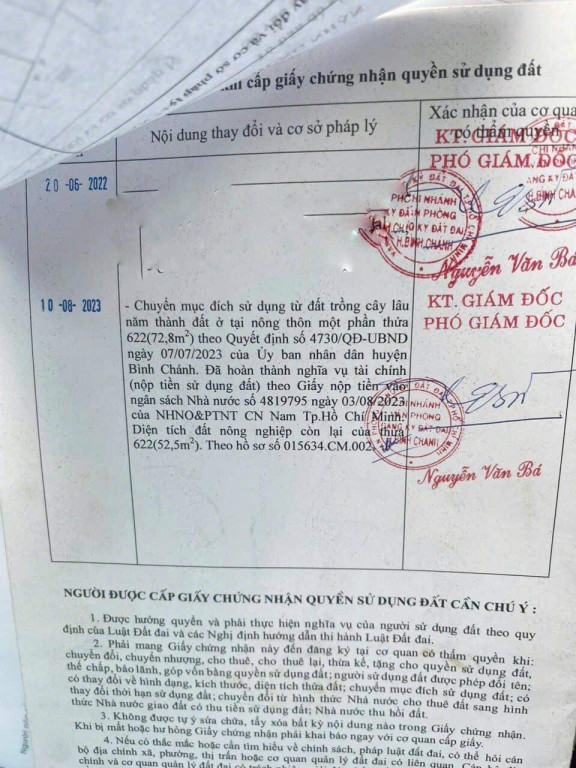 cấp giấy chứng nhận quyền sử dụng đất
Nội dung thay đổi và cơ sở pháp lý
Xác nhận của cơ quan
có thẩm quyền
KT. GIÁM ĐỐC
PHÓ GIÁM ĐỐC
20 -06- 2022
CHI NHÁNH
H.BÌNH CHÁNH
Nguyễn Văn Bá
10 -08- 2023
- Chuyển mục đích sử dụng từ đất trồng cây lâu
năm thành đất ở tại nông thôn một phần thửa
622(72,8m²) theo Quyết định số 4730/QĐ-UBND
ngày 07/07/2023 của Ủy ban nhân dân huyện
Bình Chánh. Đã hoàn thành nghĩa vụ tài chính
(nộp tiền sử dụng đất) theo Giấy nộp tiền vào
ngân sách Nhà nước số 4819795 ngày 03/08/2023
của NHNO&PTNT CN Nam Tp.Hồ Chí Minh.
Diện tích đất nông nghiệp còn lại của thửa
622(52,5m²). Theo hồ sơ số 015634.CM.002
KT. GIÁM ĐỐC
PHÓ GIÁM ĐỐC
CHI NHÁNH
VĂN PHÒNG
ĐĂNG KÝ ĐẤT ĐAI
H.BÌNH CHÁNH
Nguyễn Văn Bá
NGƯỜI ĐƯỢC CẤP GIẤY CHỨNG NHẬN QUYỀN SỬ DỤNG ĐẤT CẦN CHÚ Ý :
1. Được hưởng quyền và phải thực hiện nghĩa vụ của người sử dụng đất theo quy
định của Luật Đất đai và các Nghị định hướng dẫn thi hành Luật Đất đai.
2. Phải mang Giấy chứng nhận này đến đăng ký tại cơ quan có thẩm quyền khi:
chuyển đổi, chuyển nhượng, cho thuê, cho thuê lại, thừa kế, tặng cho quyền sử dụng đất,
thế chấp, bảo lãnh, góp vốn bằng quyền sử dụng đất; người sử dụng đất được phép đổi tên;
có thay đổi về hình dạng, kích thước, diện tích thửa đất; chuyển mục đích sử dụng đất; có
thay đổi thời hạn sử dụng đất; chuyển đổi từ hình thức Nhà nước cho thuê đất sang hình
thức Nhà nước giao đất có thu tiền sử dụng đất; Nhà nước thu hồi đất.
3. Không được tự ý sửa chữa, tẩy xóa bất kỳ nội dung nào trong Giấy chứng nhận.
Khi bị mất hoặc hư hỏng Giấy chứng nhận phải khai báo ngay với cơ quan cấp giấy.
4. Nếu có thắc mắc hoặc cần tìm hiểu về chính sách, pháp luật đất đai, có thể hỏi cán
bộ địa chính xã, phường, thị trấn hoặc cơ quan quản lý đất đai có liên quan.
chính và cơ quan quản lý đất đai có trách